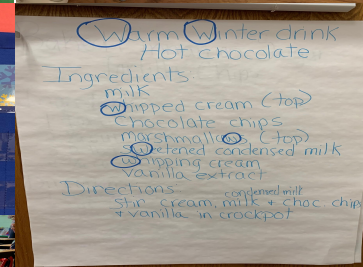 Warm Winter drink
Hot chocolate
Ingredients
milk
Whipped cream (top)
Chocolate chips
marshmallows (top)
Sweetened condensed milk
Whipping cream
Vanilla extract
Directions
condensed milk
Stir cream, milk & choc chips
& vanilla in crockpot